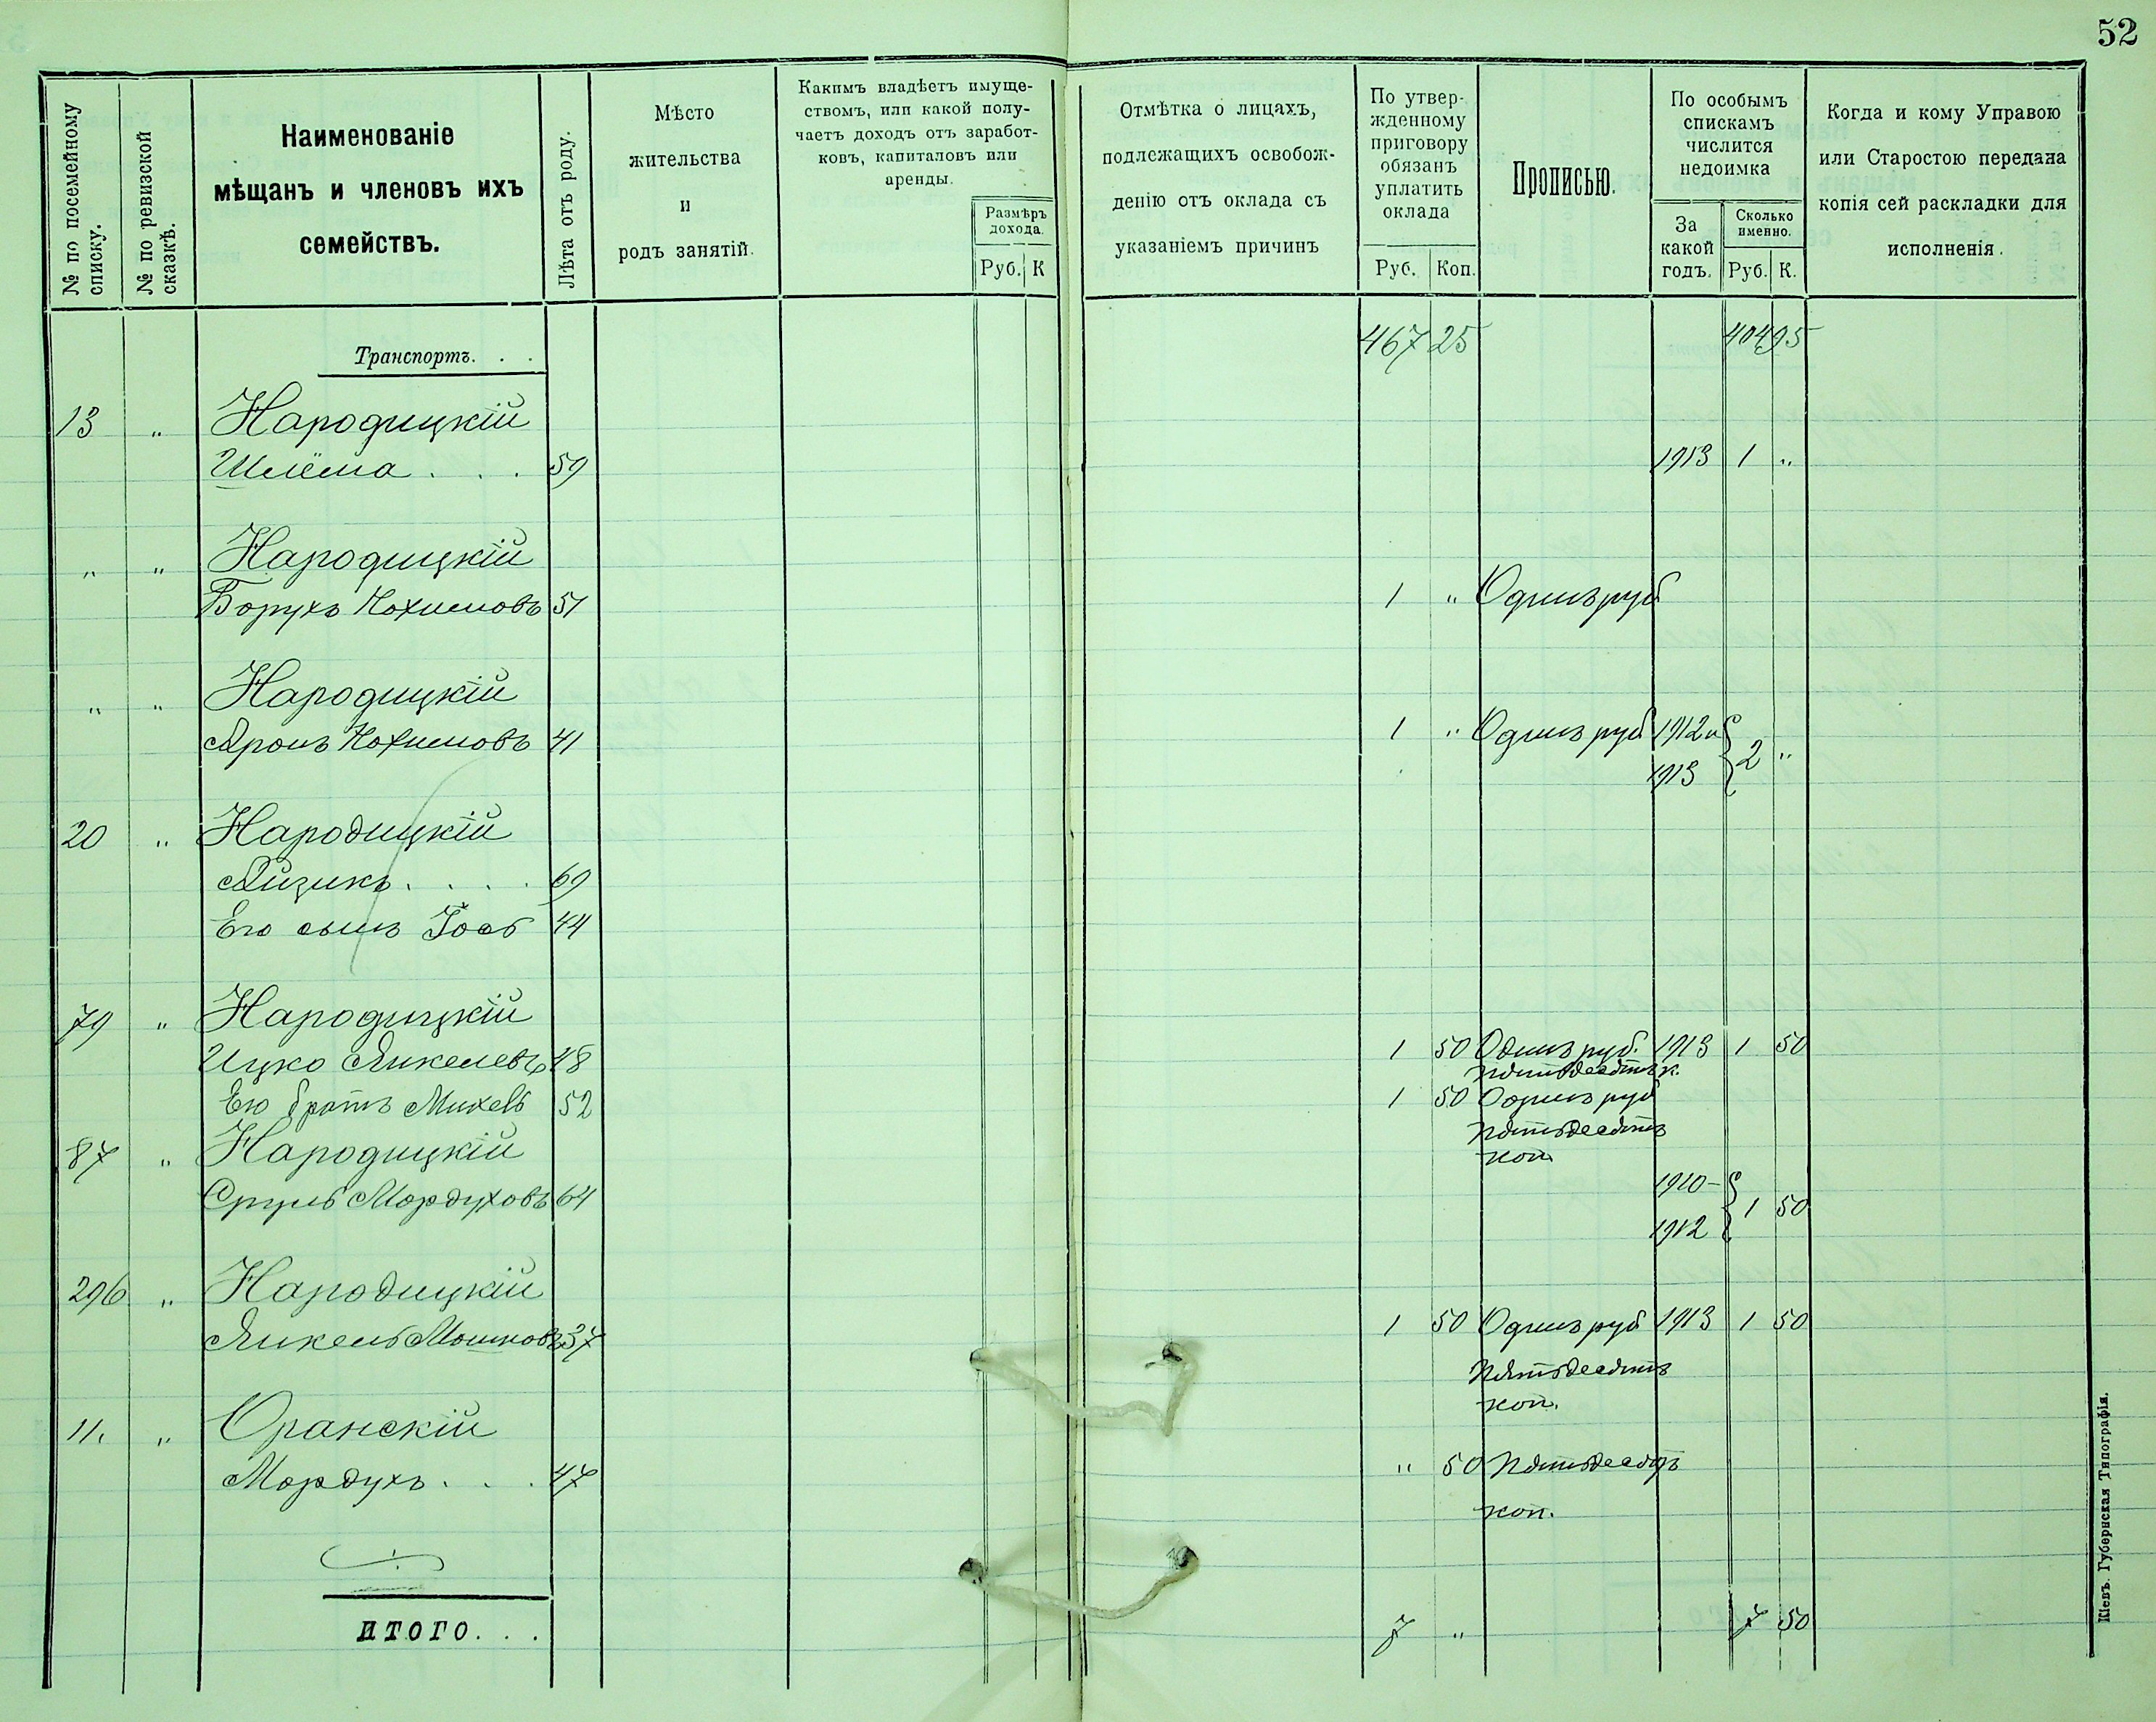 52
№ по посемейному списку.
№ по ревизской сказкѣ.
Наименованіе
мѣщанъ и членовъ ихъ
семействъ.
Лѣта отъ роду.
Мѣсто
жительства
и
родъ занятій.
Какимъ владѣетъ имуще-
ствомъ, или какой полу-
чаетъ доходъ отъ заработ-
ковъ, капиталовъ или
аренды.
Размѣръ
дохода.
Руб. К
Отмѣтка о лицахъ,
подлежащихъ освобож-
денію отъ оклада съ
указаніемъ причинъ
По утвер-
жденному
приговору
обязанъ
уплатить
оклада
Руб. Коп.
Прописью.
По особымъ
спискамъ
числится
недоимка
За
какой
годъ.
Сколько
именно.
Руб. К.
Когда и кому Управою
или Старостою передана
копія сей раскладки для
исполненія.
Транспортъ. . . 467 25 404 95
13 „ Народицкій
Шлёма . . . 59 1913 1 „
„ „ Народицкій
Борухъ Нохимовъ 51 1 „ Одинъ руб
„ „ Народицкій
Аронъ Нохимовъ 41 1 „ Одинъ руб 1912 и
1913 2 „
20 „ Народицкій
Айзикъ . . . . 69
Его сынъ Іось 44
79 „ Народицкій
Ицко Янкелевъ 48 1 50 Одинъ руб. 1913 1 50
пятьдесятъ к.
Его братъ Михель 52 1 50 Одинъ руб
пятьдесятъ
87 „ Народицкій коп
Сруль Мордуховъ 64 1910-
1912 1 50
296 „ Народицкій
Янкель Мошковъ 37 1 50 Одинъ руб 1913 1 50
Пятьдесятъ
коп.
11. „ Оранскій
Мордухъ . . . 47 „ 50 Пятьдесятъ
коп.
ИТОГО. . . 7 „ 7 50
Кіевъ. Губернская Типографія.